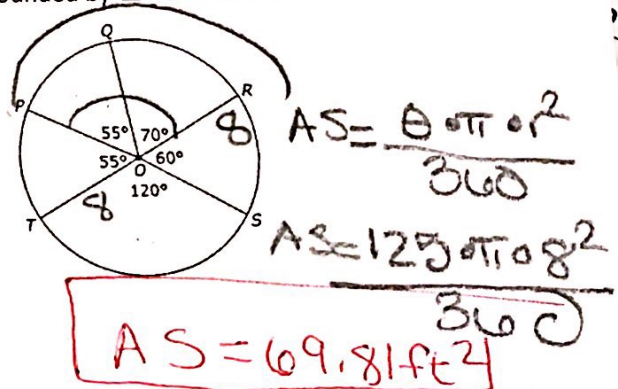 Q
P
R
55° 70°
8
55° O 60°
120°
8
T
S
AS = θ•π•r²
360
AS = 125•π•8²
360
AS = 69.81ft²